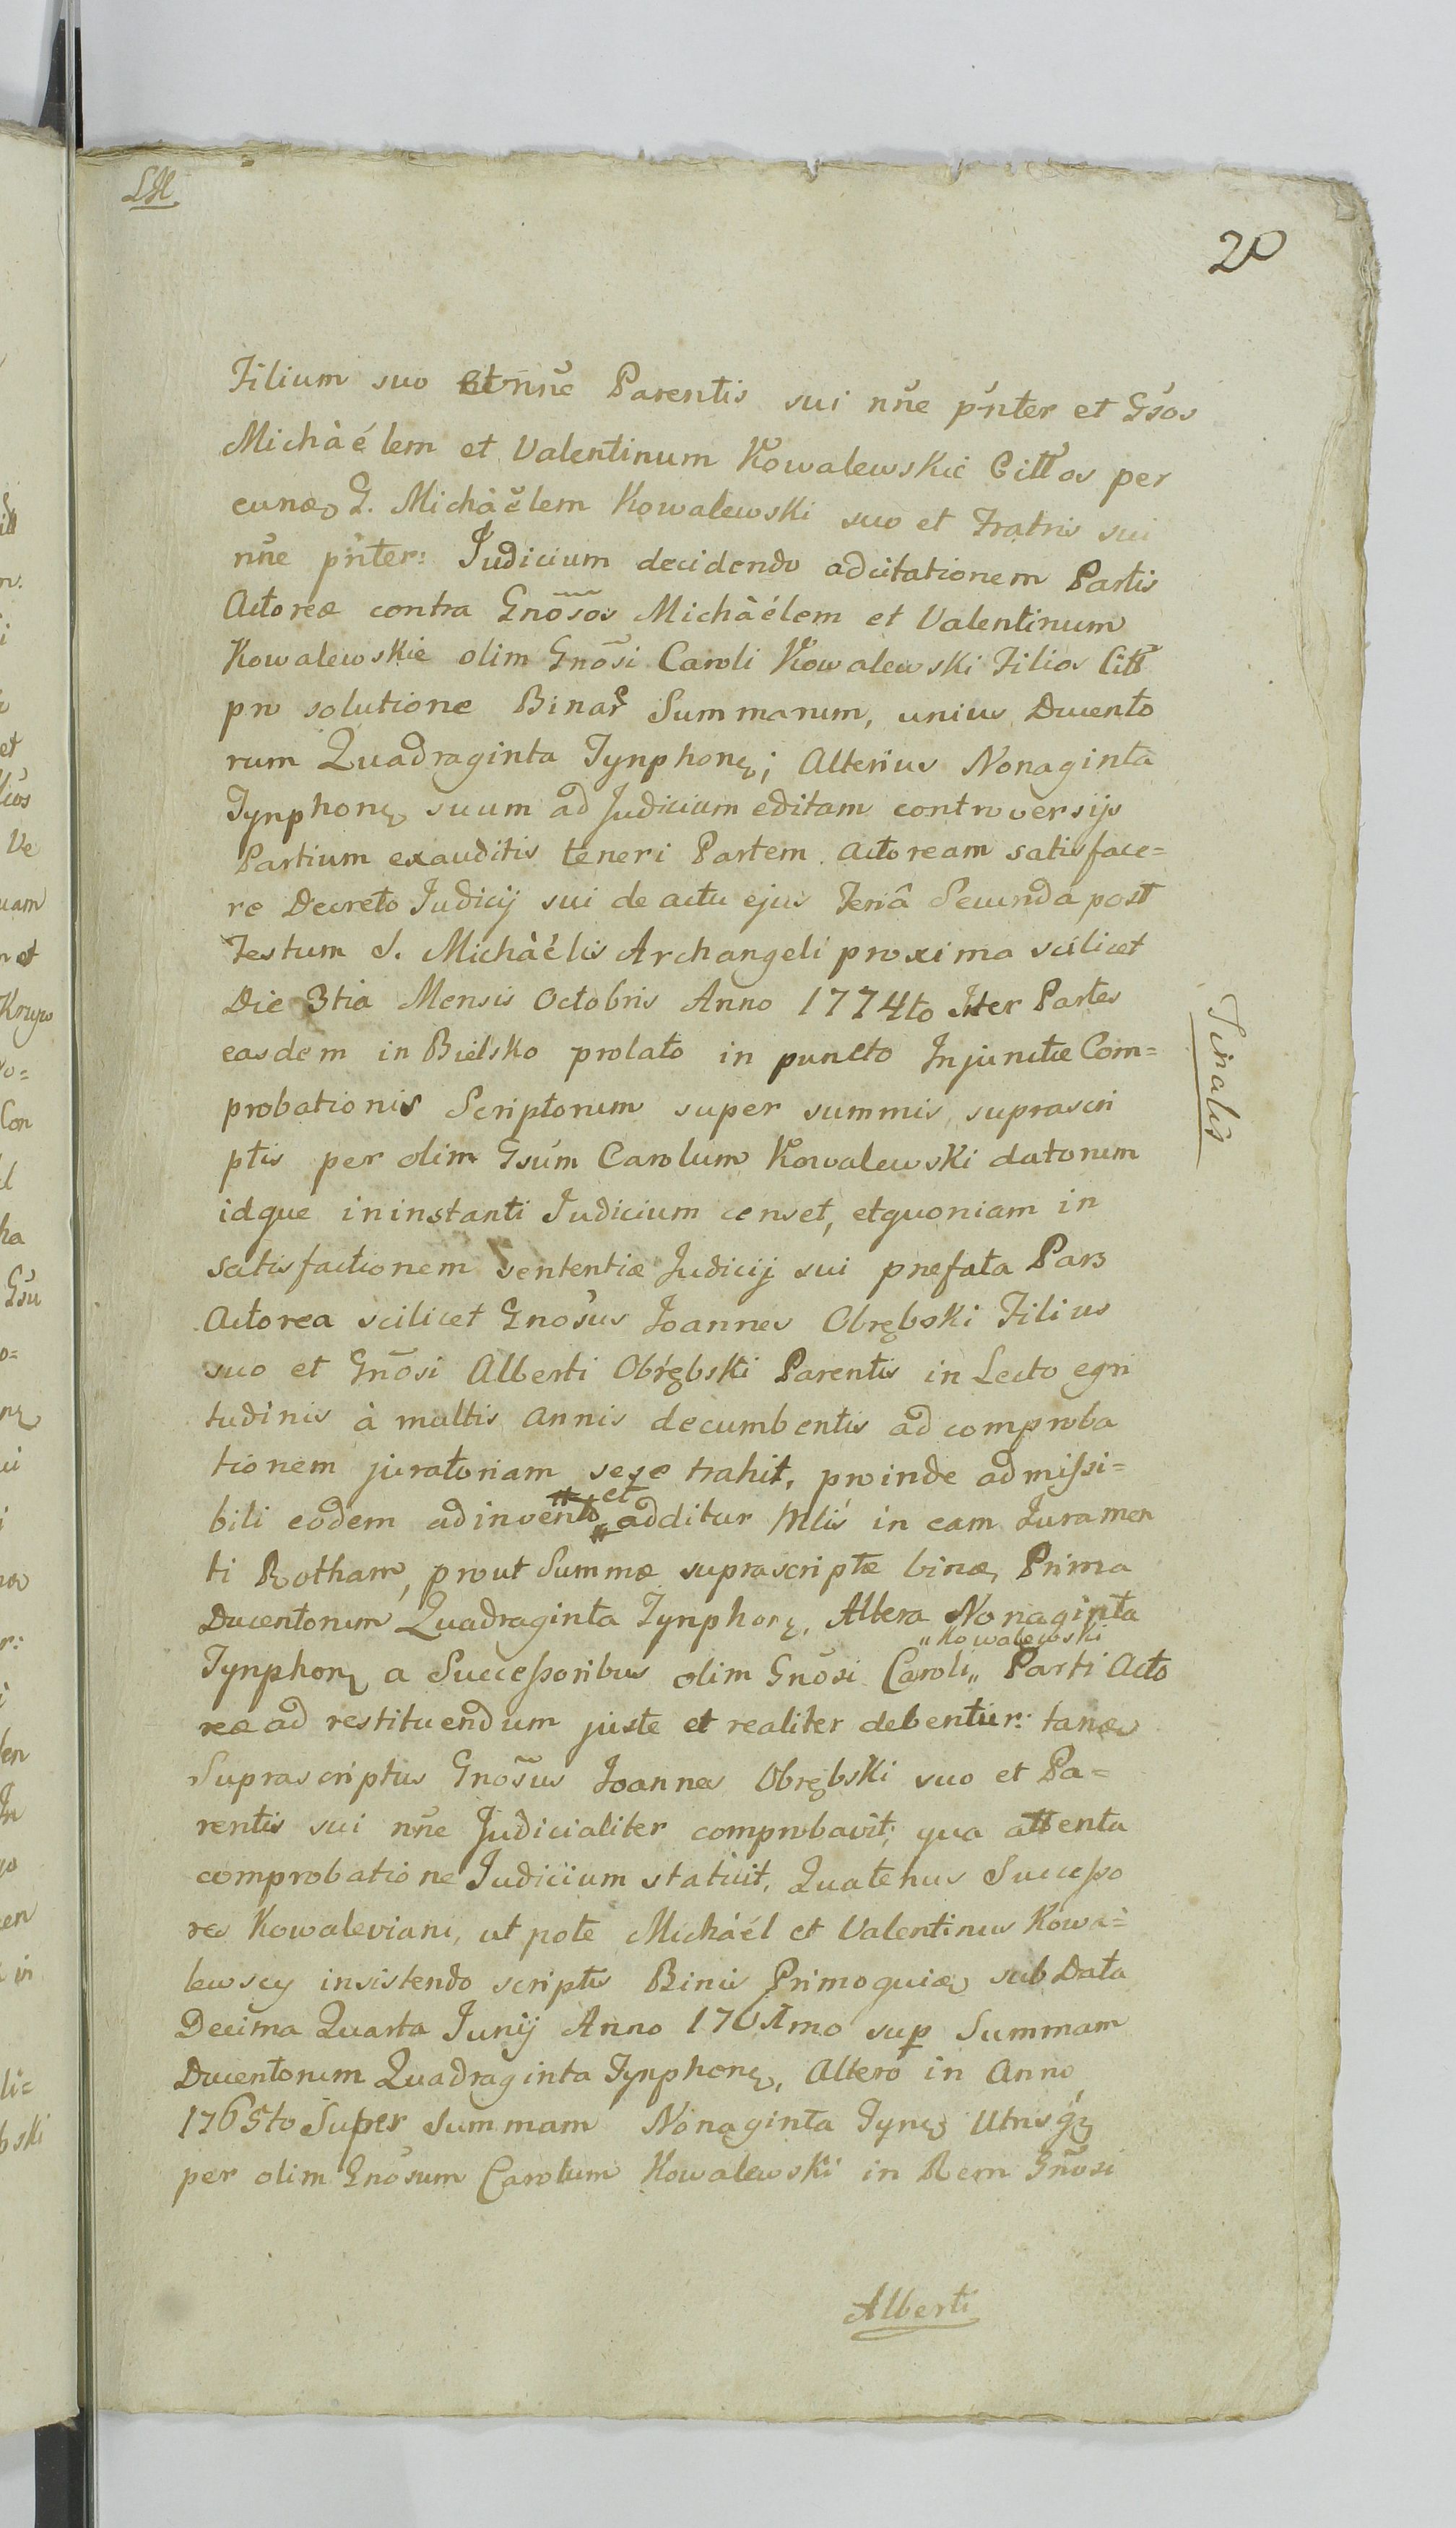 20
Filium suo et nñe Parentis sui nñe pñter et Gsos
Michàélem et Valentinum Kowalewskie Citt̃os per
eund G. Michàélem Kowalewski suo et Fratris sui
nñe pñter: Judicium decidendo adcitationem Partis
Actoreæ contra Gnõsos Michàélem et Valentinum
Kowalewskie olim Gnõsi Caroli Kowalewski Filios Citt̃
pro solutione Binar̃ Summarum, unius Ducento
rum Quadraginta Tynphonę; Alterius Nonaginta
Tynphonę suum ad Judicium editam controversijs
Partium exauditis teneri Partem Actoream satisface=
re Decreto Judicij sui de actu ejus Feriâ Secunda post
Festum S. Michàélis Archangeli proxima scilicet
Die 3tia Mensis Octobris Anno 1774to Inter Partes
easdem in Bielsko prolato in puncto Injunctæ Com=
probationis Scriptorum super summis suprascri
ptis per olim Gsum Carolum Kowalewski datorum
idque ininstanti Judicium censet, etquoniam in
satisfactionem sententiæ Judicij sui prefata Pars
Actorea scilicet Gnosus Joannes Obrębski Filius
suo et Gnõsi Alberti Obrębski Parentis in Lecto egri
tudinis à multis annis decumbentis ad comproba
tionem juratoriam sese trahit, proinde admissi=
et
bili eodem adinvento additur Mlis in eam Juramen
ti Rotham, prout Summæ suprascriptæ binæ, Prima
Ducentorum Quadraginta Tynphorę, Altera Nonaginta
"Kowalewski
Tynphorę a Successoribus olim Gnõsi Caroli" Parti Acto
reæ ad restituendum juste et realiter debentur: tanq
Suprascriptus Gnõsus Joannes Obrębski suo et Pa=
rentis sui nñe Judicialiter comprobavit; qua attenta
comprobatione Judicium statuit, Quatenus Successo
res Kowaleviani, ut pote Michàél et Valentinus Kowa=
lewscy insistendo scriptis Binis Primoquiæ sub Data
Decima Quarta Junij Anno 1761mo sup Summam
Ducentorum Quadraginta Tynphonę, Altero in Anno
1765to Super Summam Nonaginta Tynę Utrisqʒ
per olim Gnõsum Carolum Kowalewski in Rem Gnõsi
Alberti
Finalis